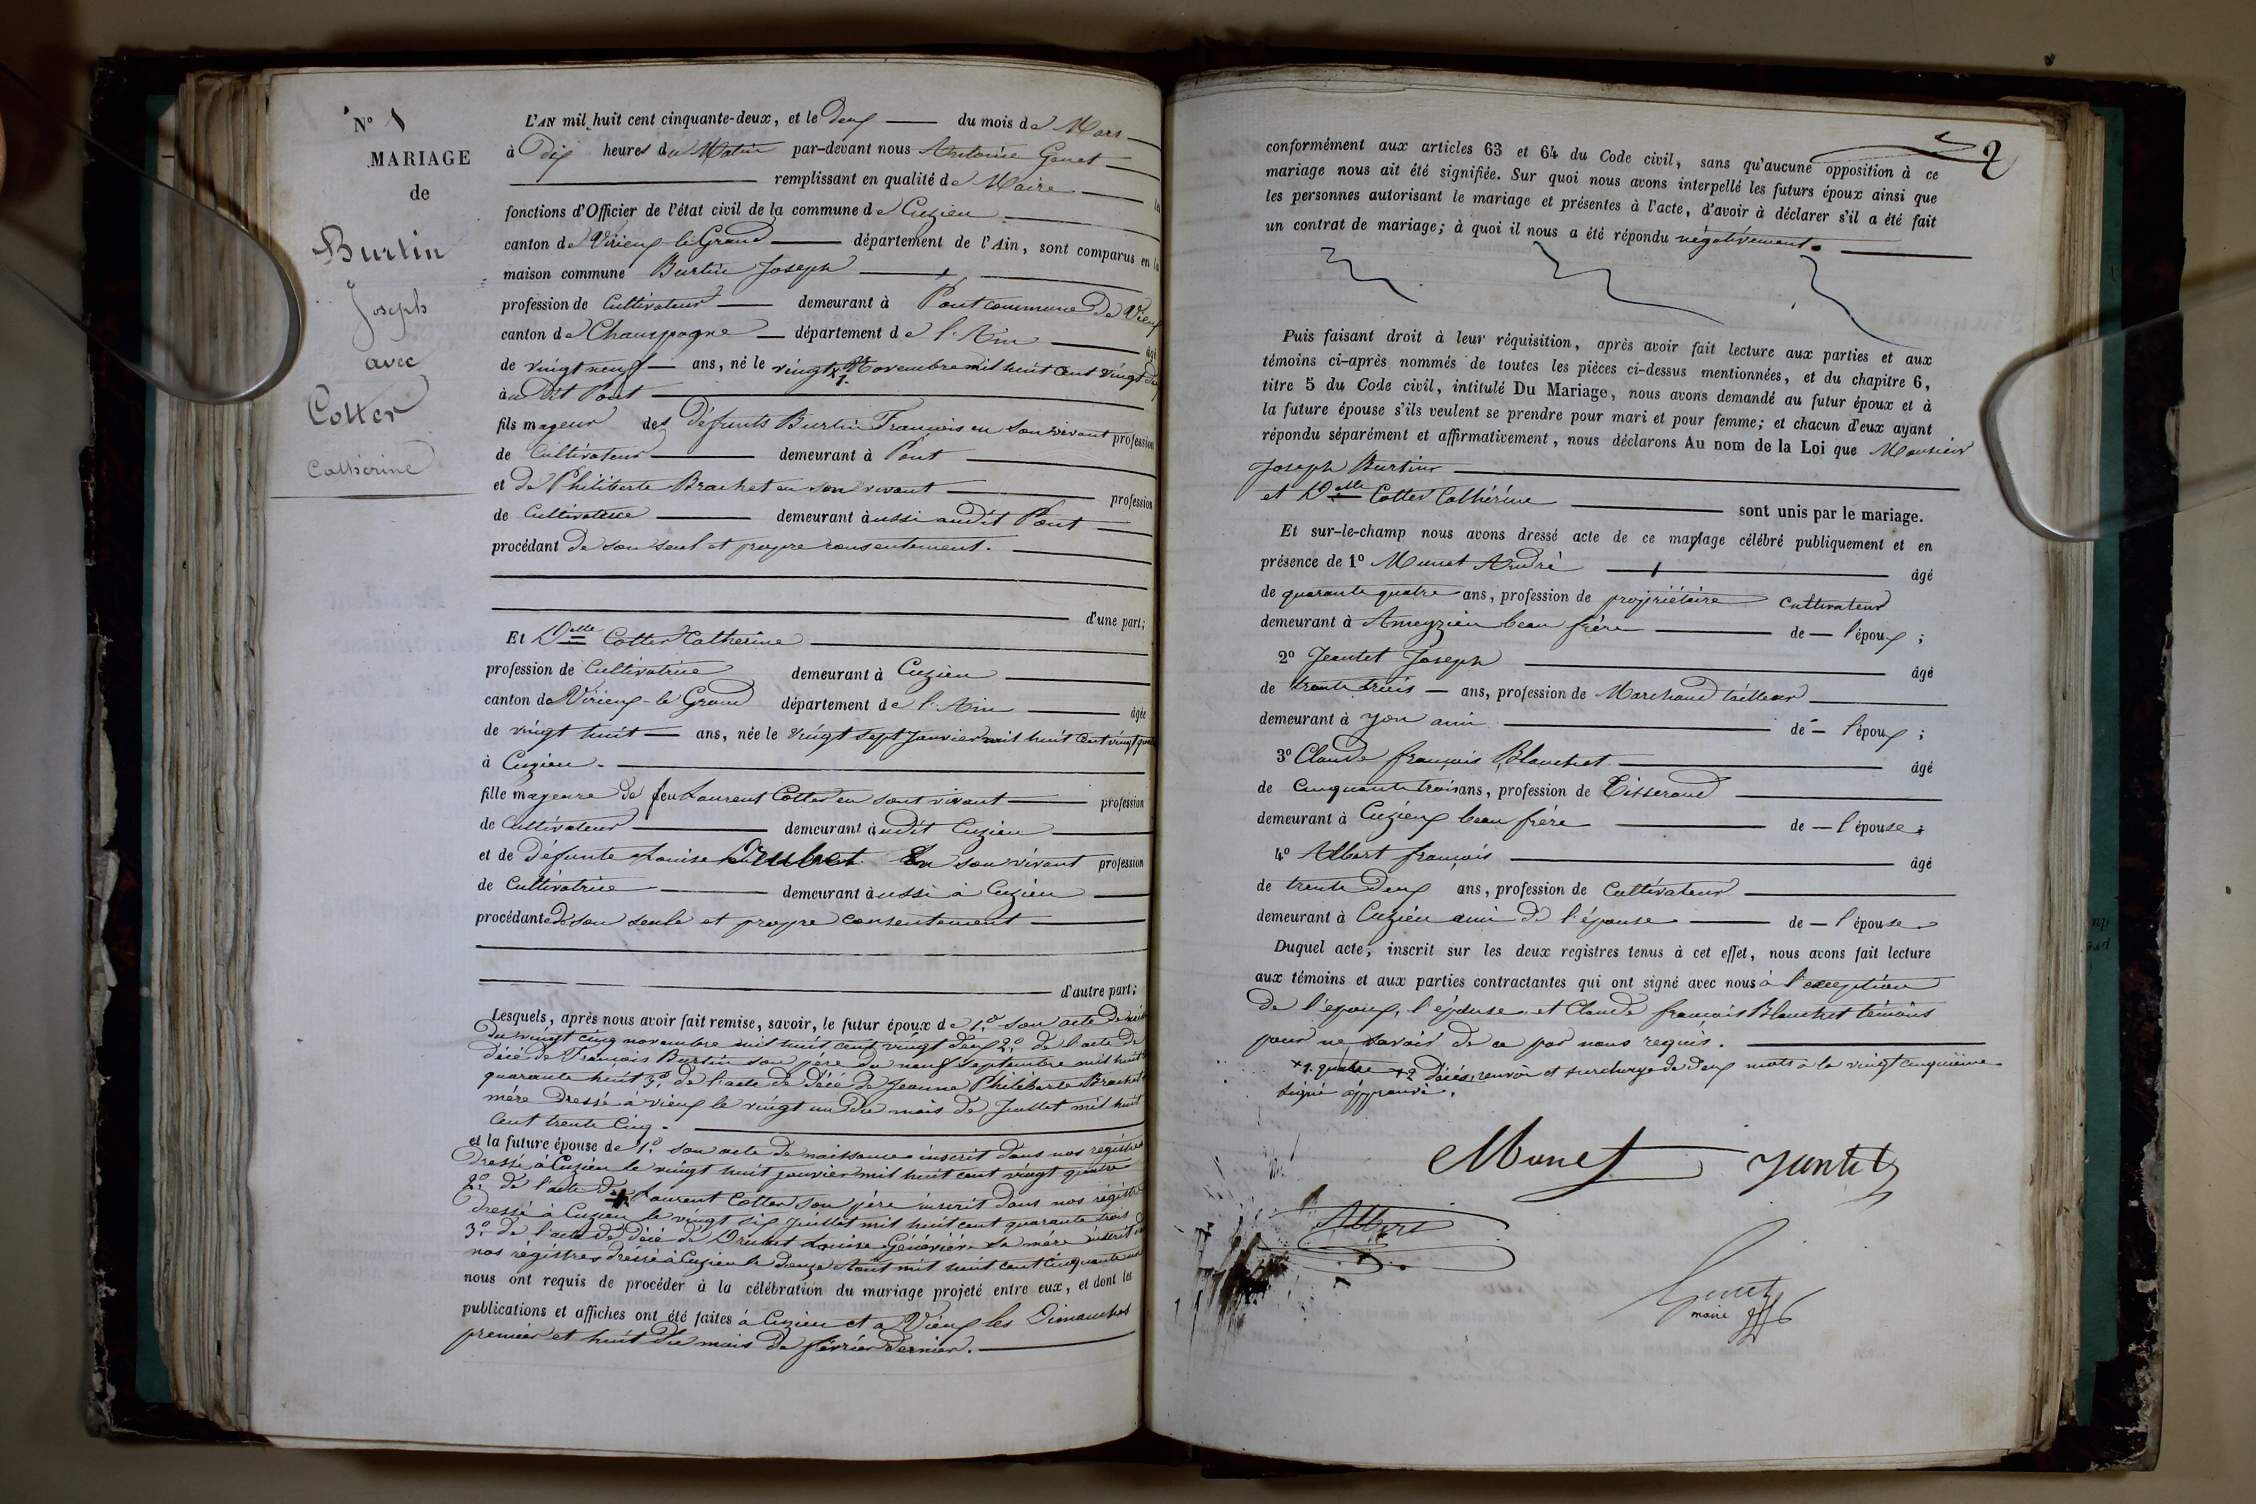 N° 1
MARIAGE
de
Burtin
Joseph
avec
Cotter
Catherine
L'AN mil huit cent cinquante-deux, et le deux du mois de Mars
à Dix heures du Matin par-devant nous Antoine Genet
remplissant en qualité de Maire les
fonctions d'Officier de l'état civil de la commune de Cuzieu
canton de Virieux-le-Grand département de l'Ain, sont comparus en la
maison commune Burtin Joseph
profession de Cultivateur demeurant à Pont commune de Vieux
canton de Champagne département de l'Ain âgé
de vingt neuf ans, né le vingt Novembre mil huit cent vingt deux
à u dit Pont
fils mageur des défunts Burtin François en son vivant profession
de Cultivateur demeurant à Pont
et de Philiberte Brachet en son vivant profession
de Cultivatrice demeurant à ussi audit Pont
procédant de son seul et propre consentement.
d'une part;
Et Delle Cotter Catherine
profession de Cultivatrice demeurant à Cuzieu
canton de Virieux-le-Grand département de l'Ain âgée
de vingt huit ans, née le vingt sept Janvier mil huit cent vingt quatre
à Cuzieu.
fille mageure de feu Laurent Cotter en sont vivant profession
de Cultivateur demeurant à udit Cuzieu
et de défunte Louise Drubret En son vivant profession
de Cultivatrice demeurant à ussi à Cuzieu
procédante de son seule et propre consentement
d'autre part;
Lesquels, après nous avoir fait remise, savoir, le futur époux de 1.° son acte de
du vingt cinq novembre mil huit cent vingt deux 2.° de l'acte de
décé de François Burtin son père du neuf septembre mil huit
quarante huit 3.° de l'acte de décé de Jeanne Philiberte Brachet
mère dressé à vieux le vingt un du mois de Juillet mil huit
cent trente cinq.
et la future épouse de 1.° son acte de naissance inscrit dans nos régistres
dressé à Cuzieu le vingt huit janvier mil huit cent vingt quatre
2.° de l'acte de + Laurent Cotter son père inscrit dans nos régistres
dressé à Cuzieu le vingt six Juillet mil huit cent quarante trois
3.° de l'acte de décé de Drubret Louise Généviève sa mère inscrit
nos régistres dréssé à Cuzieu le douze Août mil huit cent cinquante un
nous ont requis de procéder à la célébration du mariage projeté entre eux, et dont les
publications et affiches ont été faites à Cuzieu et a Vieux les Dimanches
premier et huit du mois de février dernier.
2
conformément aux articles 63 et 64 du Code civil, sans qu'aucune opposition à ce
mariage nous ait été signifiée. Sur quoi nous avons interpellé les futurs époux ainsi que
les personnes autorisant le mariage et présentes à l'acte, d'avoir à déclarer s'il a été fait
un contrat de mariage; à quoi il nous a été répondu négativement.
Puis faisant droit à leur réquisition, après avoir fait lecture aux parties et aux
témoins ci-après nommés de toutes les pièces ci-dessus mentionnées, et du chapitre 6,
titre 5 du Code civil, intitulé Du Mariage, nous avons demandé au futur époux et à
la future épouse s'ils veulent se prendre pour mari et pour femme; et chacun d'eux ayant
répondu séparément et affirmativement, nous déclarons Au nom de la Loi que Monsieur
Joseph Burtin
et Delle Cotter Cathérine sont unis par le mariage.
Et sur-le-champ nous avons dressé acte de ce mariage célébré publiquement et en
présence de 1° Munet André âgé
de quarante quatre ans, profession de propriétaire cultivateur
demeurant à Ameyzieu beau frère de l'époux ;
2° Jeantet Joseph âgé
de trente trois ans, profession de Marchand tailleur
demeurant à yon ami de l'époux ;
3° Claude françois Blanchet âgé
de Cinquante trois ans, profession de Tisserand
demeurant à Cuzieux beau frère de l'épouse ;
4° Albert françois âgé
de trente deux ans, profession de Cultivateur
demeurant à Cuzieu ami de l'épouse de l'épouse
Duquel acte, inscrit sur les deux registres tenus à cet effet, nous avons fait lecture
aux témoins et aux parties contractantes qui ont signé avec nous à l'exception
de l'époux, l'épouse et Claude françois Blanchet témoins
pour ne savoir de ce par nous requis.
+1. quatre +2 décés, renvoi et surcharge de deux mots à la vingt cinquième
ligne approuvé.
Munet Jantet
Albert
Genet
maire